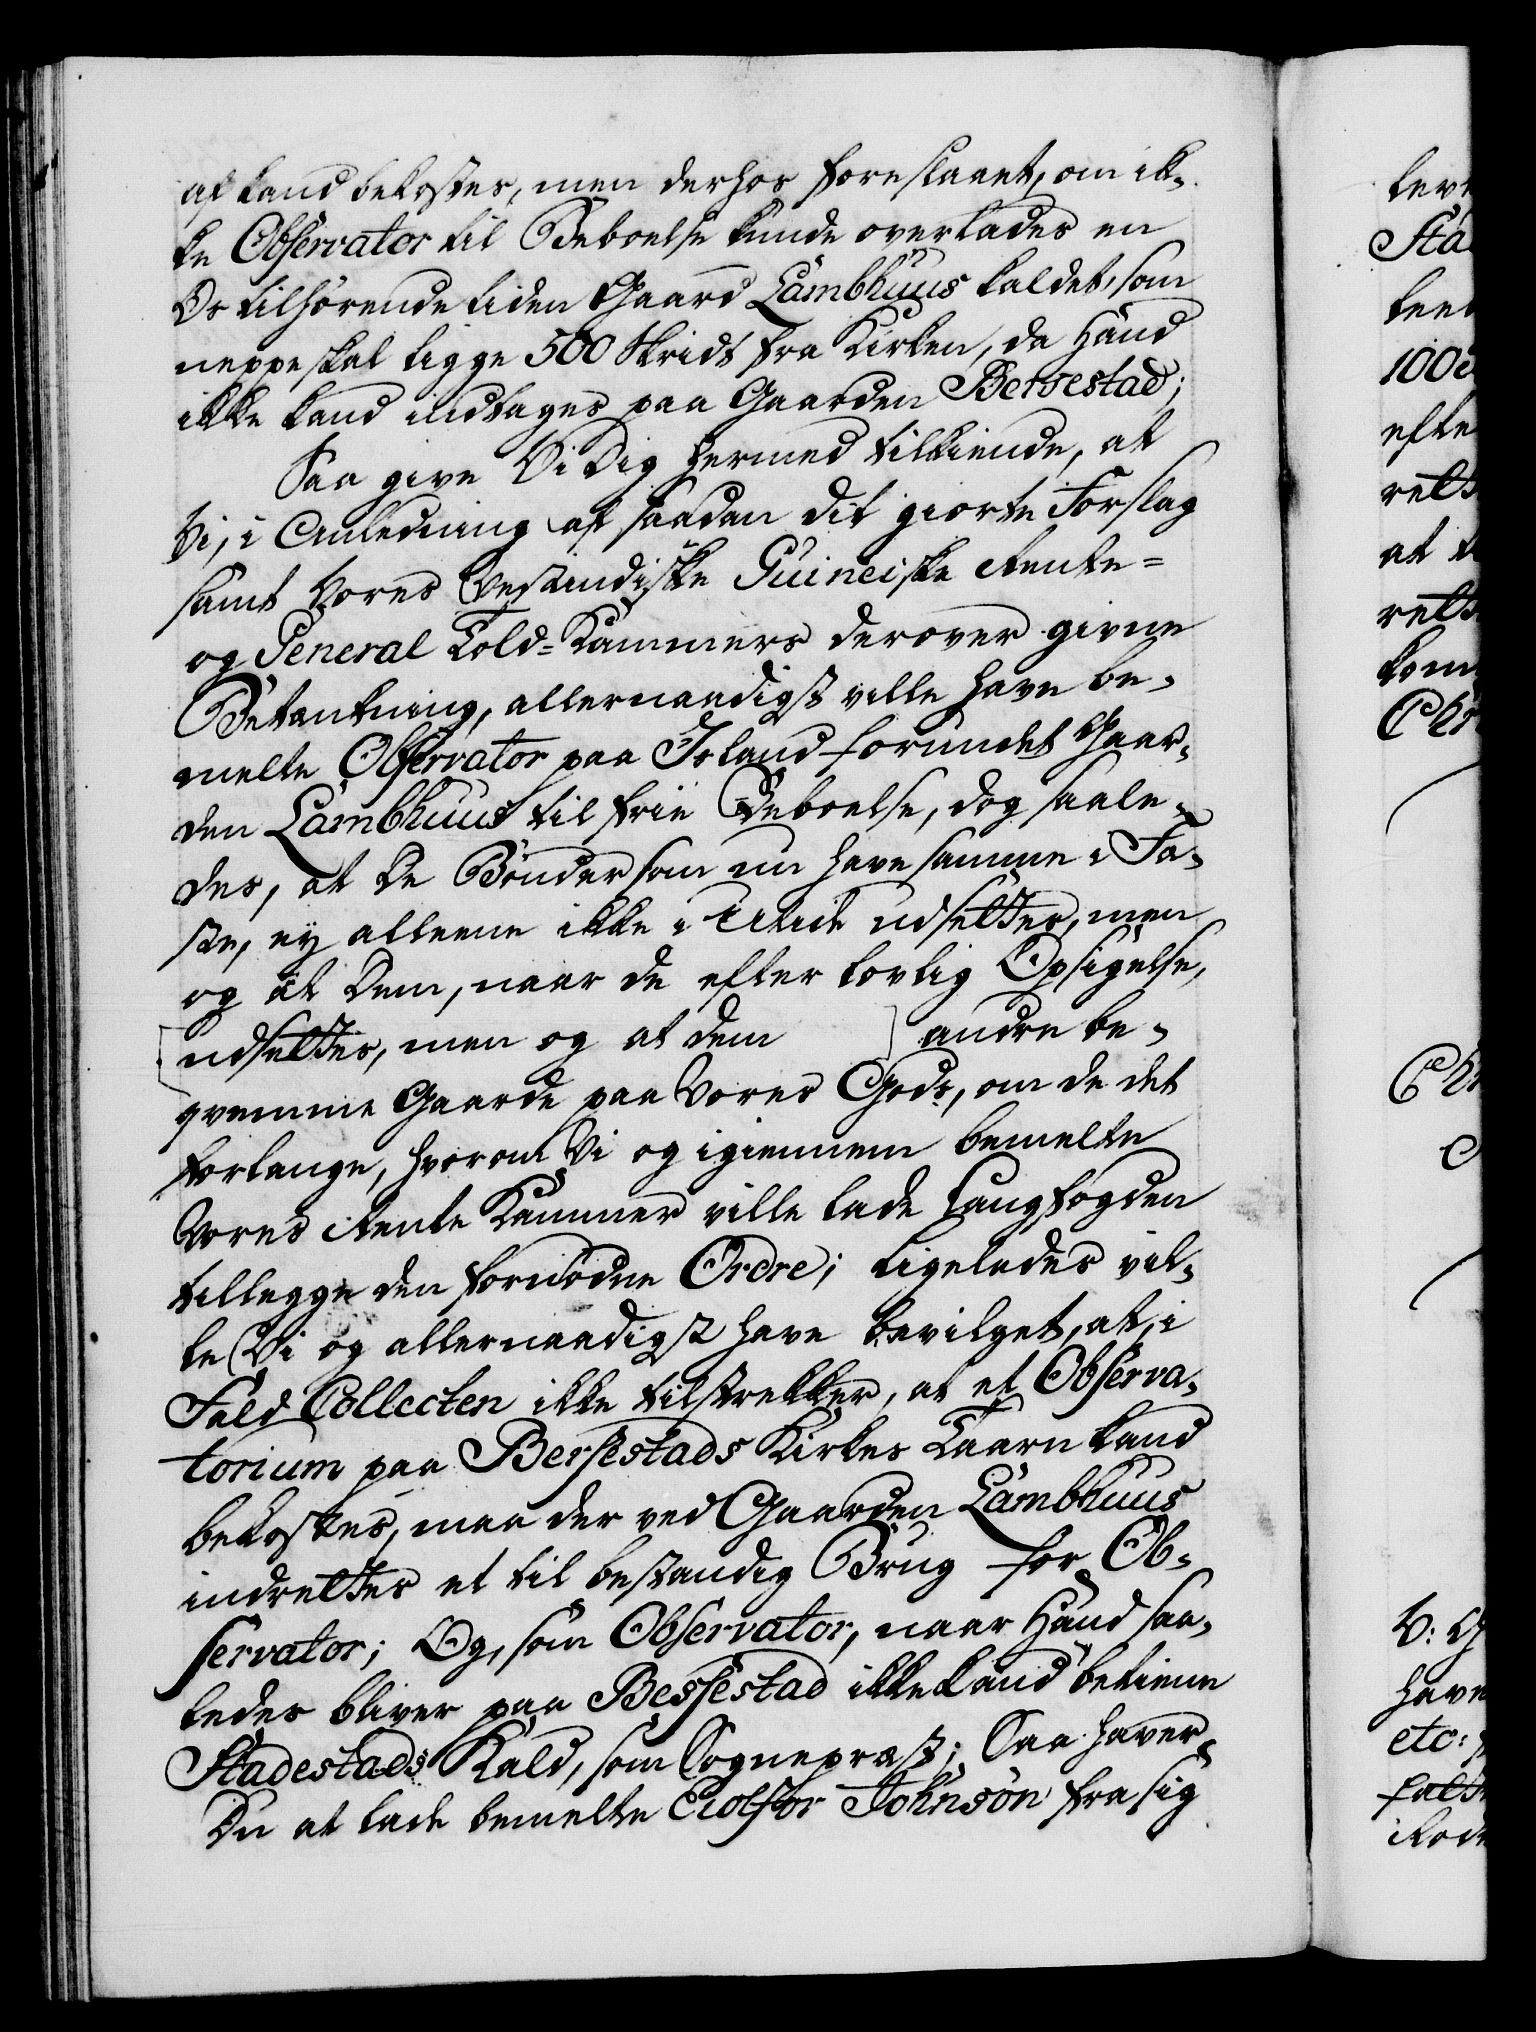 af kand bekostes, men derhos foreslaaet, om ik-
ke Observator til Beboelse kunde overlades en
Os tilhørende liden Gaard Lambhuus kaldet, som
neppe skal ligge 500 Skridt fra Kirken, da Hand
ikke kand indtages paa Gaarden Bersestad;
Saa give Vi Dig hermed tilkiende, at
Vi, i Anledning af saadan dit giorte Forslag
samt Vores Vestindiske Guineiske Rente=
og General Told=Kammers derover givne
Betænkning, allernaadigst ville have be-
melte Observator paa Island forundt Gaar-
den Lambhuus til frie Beboelse, dog saale-
des, at de Bønder som nu have samme i Fæ-
ste, ey alleene ikke i Utide udsettes, men
og at Dem, naar de efter lovlig Opsigelse,
udsettes, men og at dem andre be-
qvemme Gaarde paa Vores Gods, om de det
forlange, hvorom Vi og igiennem bemelte
Vores Rente Kammer ville lade Langfogden
tillegge den fornødne Ordre; Ligeledes vil-
le Vi og allernaadigst have bevilget, at, i
Fald Collecten ikke tilstrekker, at et Observa-
torium paa Bersestads Kirkes Taarn kand
bekostes, maa der ved Gaarden Lambhuus
indrettes et til bestandig Brug for Ob-
servator; Og, som Observator, naar Hand saa-
ledes bliver paa Bessestad ikke kand betiene
Stadestads Kald, som Sognepræst; Saa haver
Du at lade bemelte Eiolfor Johnsøn fra sig